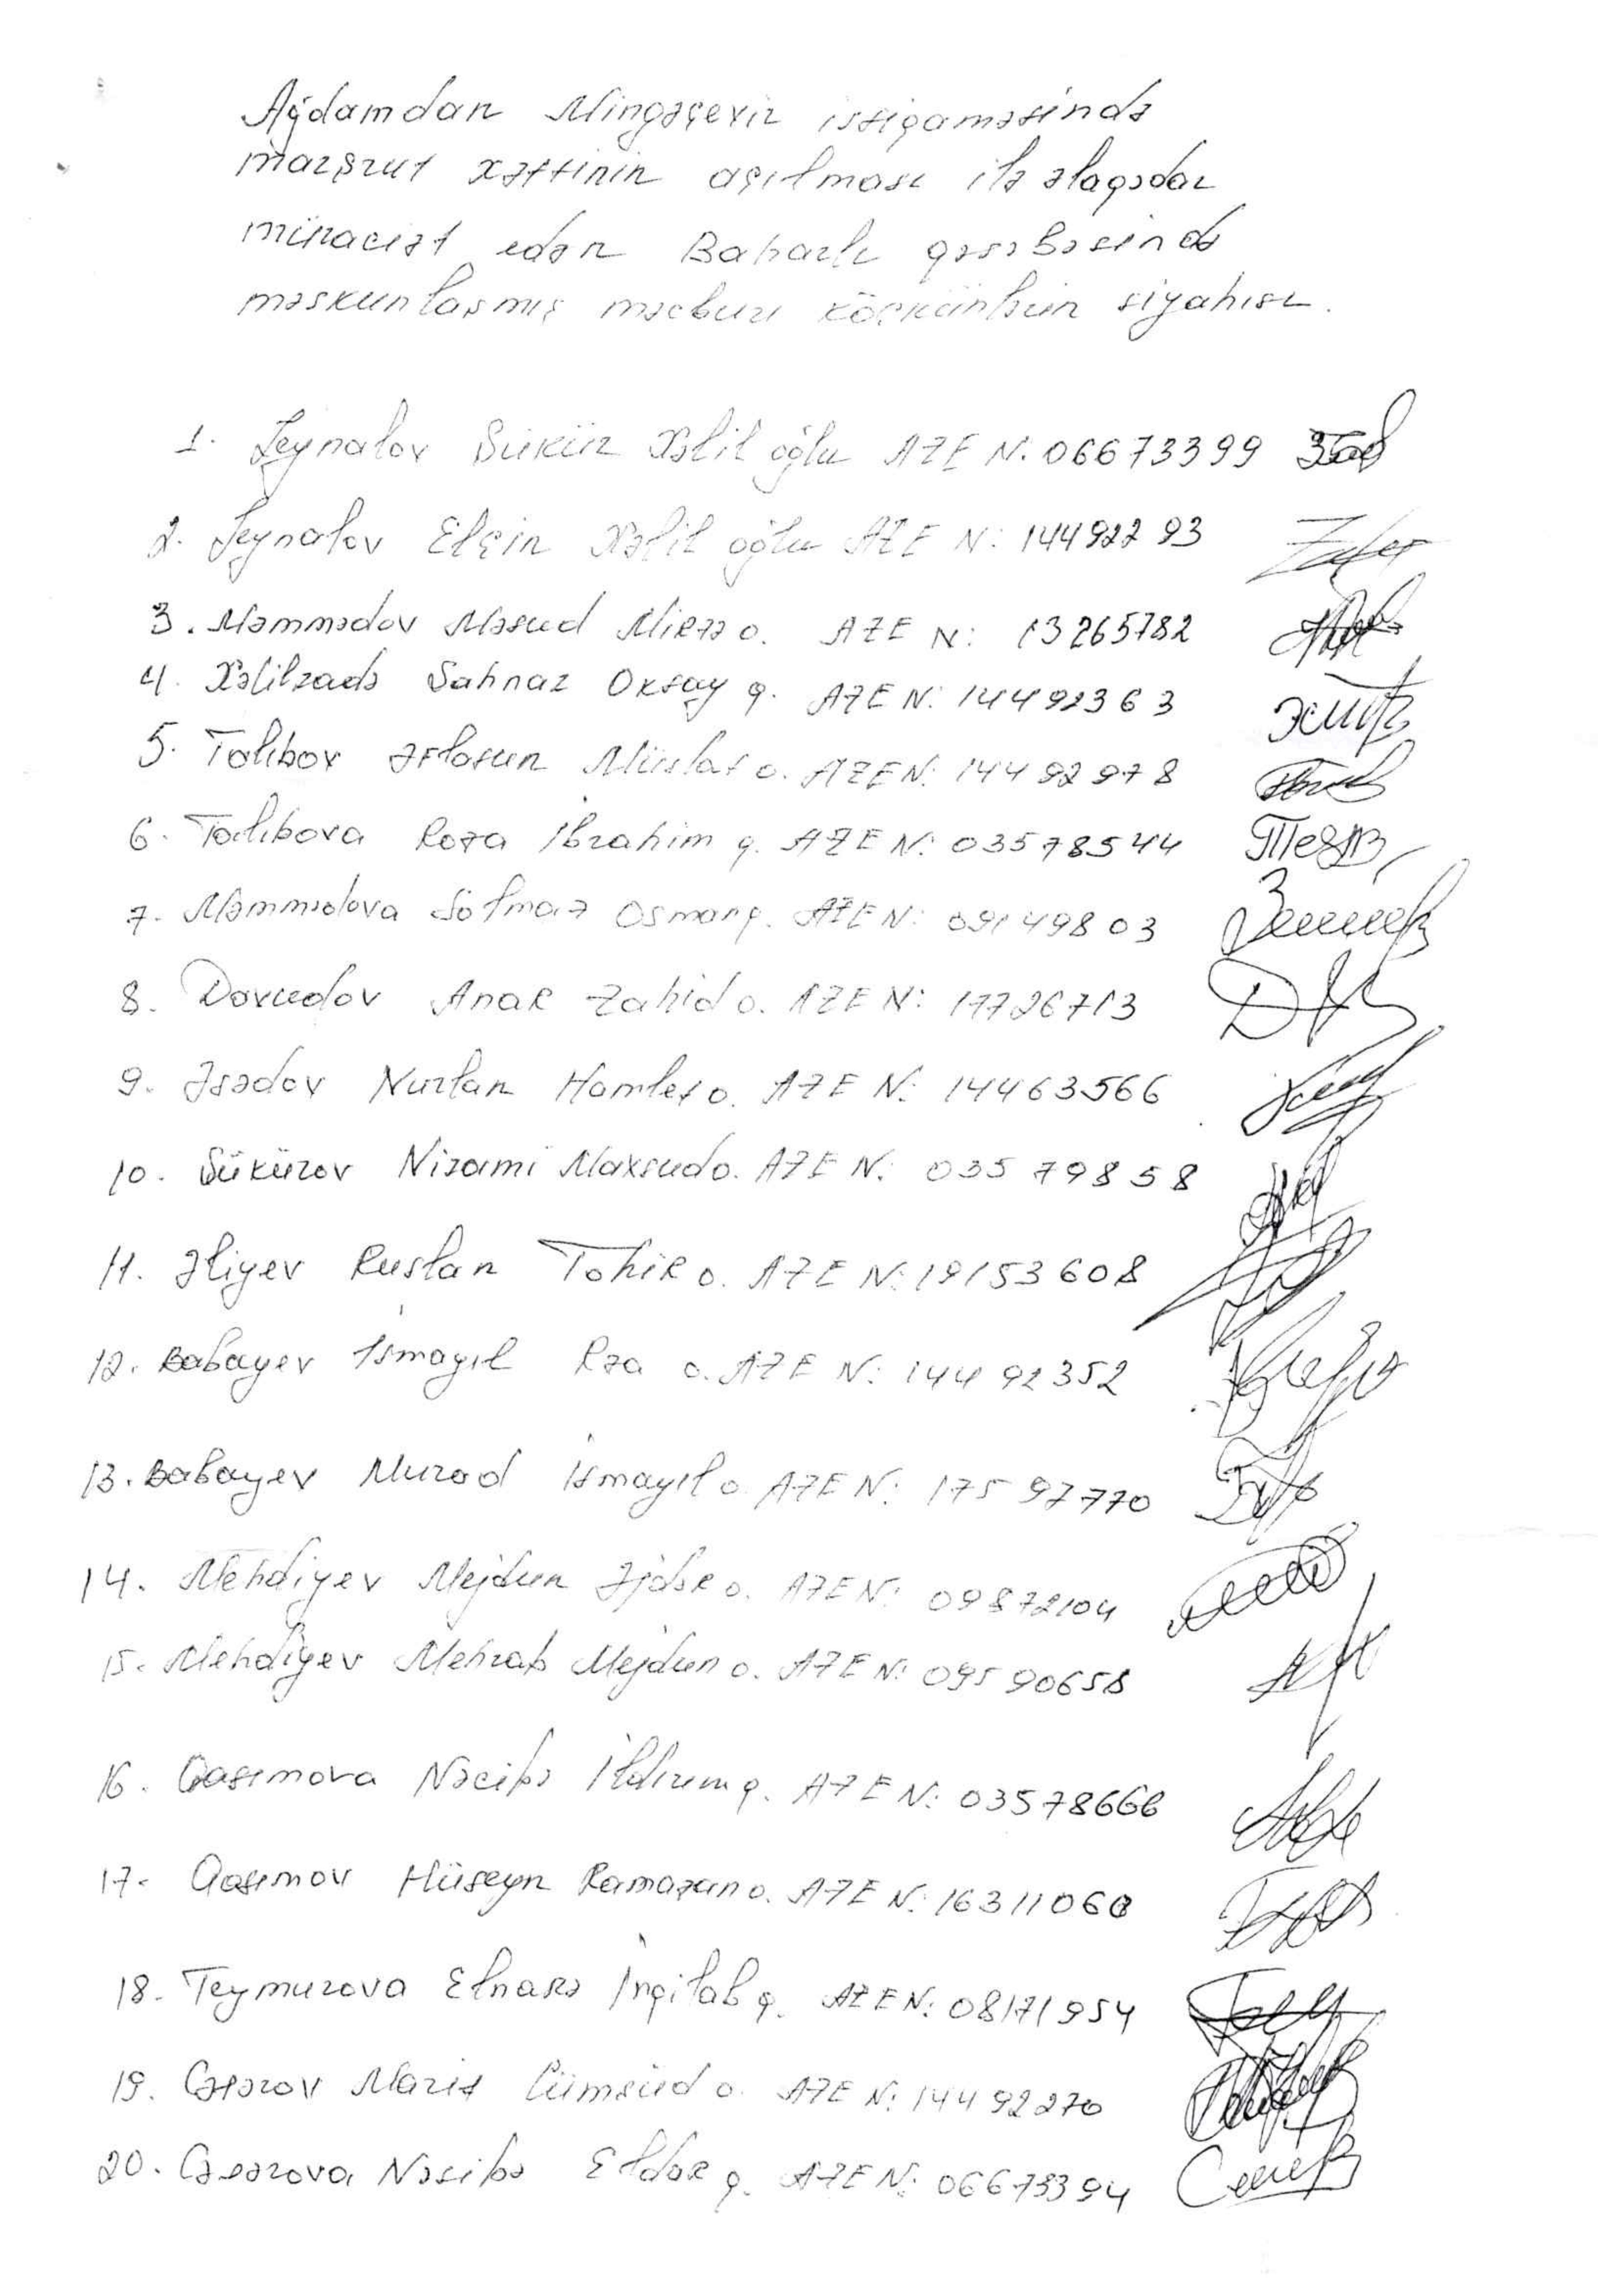 Ağdamdan Mingəçevir istiqamətində
marşrut xəttinin açılması ilə əlaqədar
müraciət edən Baharlı qəsəbəsində
məskunlaşmış məcburi köçkünlərin siyahısı.
1. Zeynalov Şükür Xəlil oğlu AZE N. 06673399
2. Zeynalov Elçin Xəlil oğlu AZE N: 14492293
3. Məmmədov Məsud Mirzə o. AZE N: 13265782
4. Xəlilzadə Şahnaz Oktay q. AZE N: 14492363
5. Talıbov Əflatun o. AZE N: 14492978
6. Talıbova Roza İbrahim q. AZE N: 03578544
7. Məmmədova Solmaz Osman q. AZE N: 09149803
8. Davudov Anar Zahid o. AZE N: 17726713
9. Əsədov Nurlan Hamlet o. AZE N: 14463566
10. Şükürov Nizami Maxsud o. AZE N: 03579858
11. Əliyev Ruslan Tahir o. AZE N: 19153608
12. Babayev İsmayıl Rza o. AZE N: 14492352
13. Babayev Murad İsmayıl o. AZE N: 17597770
14. Mehdiyev Mejdun Əjdər o. AZE N: 09872104
15. Mehdiyev Mehrab Mejdun o. AZE N: 09590658
16. Qasımova Nəcibə İldırım q. AZE N: 03578666
17. Qasımov Hüseyn Ramazan o. AZE N: 16311060
18. Teymurova Elnarə İnqilab q. AZE N: 08171954
19. Cəfərov Cümşüd o. AZE N: 14492270
20. Cəfərova Nəsibə Eldar q. AZE N: 06673394